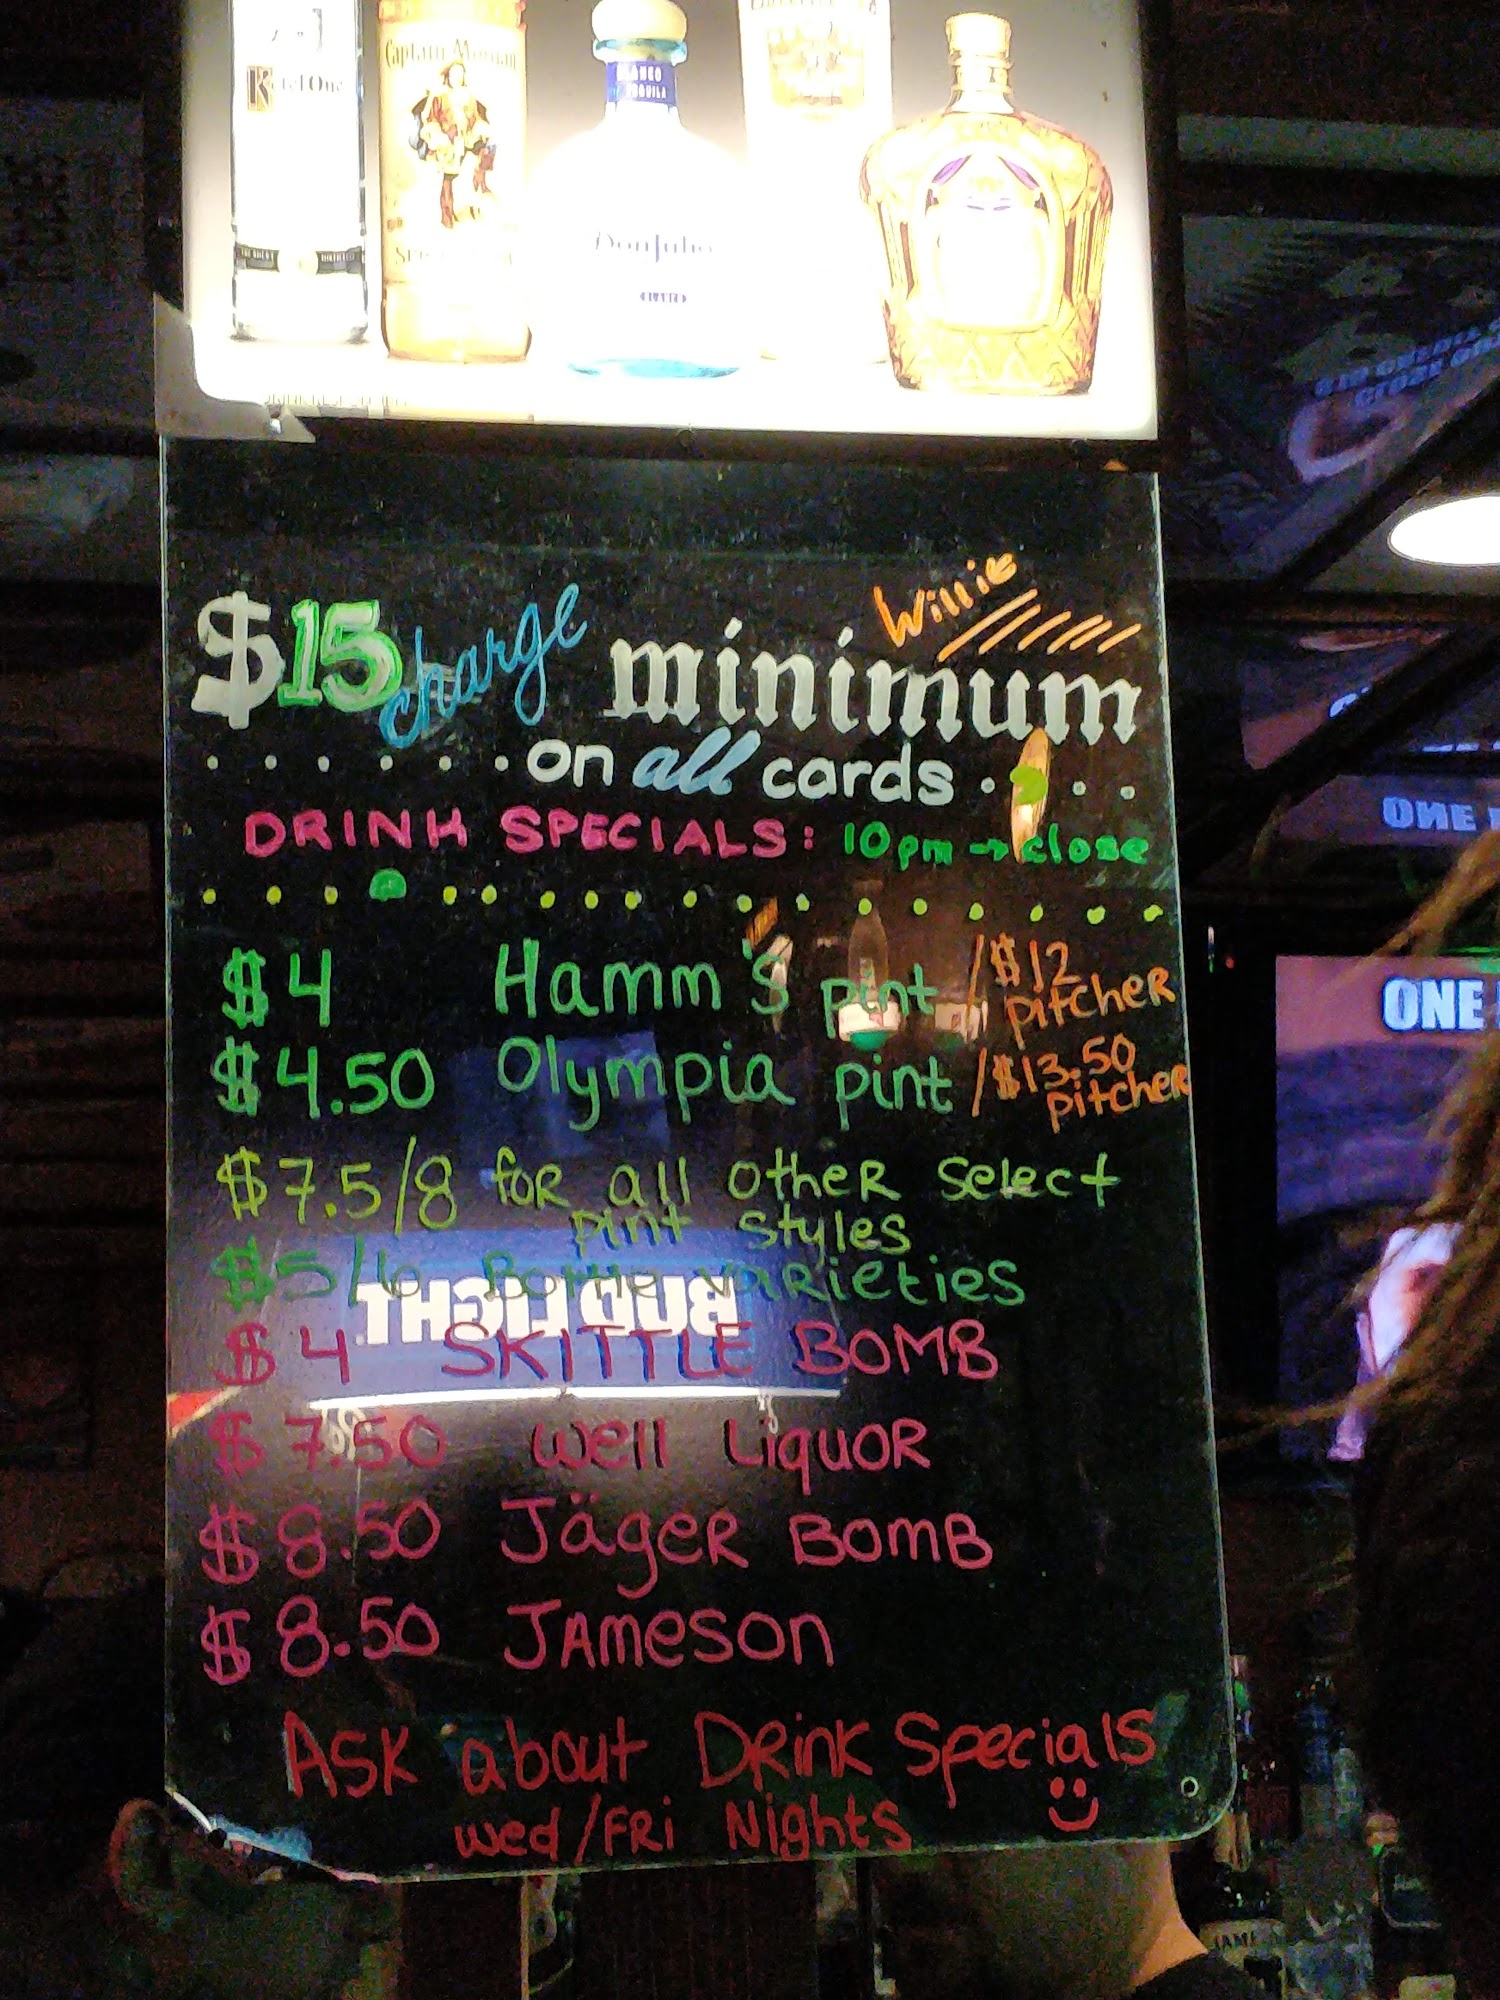 Ketel One
Captain Morgan
BLANCO
TEQUILA
Don Julio
BLANCO
Willie
$15 charge minimum
on all cards
DRINK SPECIALS: 10pm → close
$4 Hamm's pint / $12 pitcher
$4.50 Olympia pint / $13.50 pitcher
$7.5/8 for all other select
pint styles
$5/6 Bottle varieties
BUD LIGHT
$4 SKITTLE BOMB
$7.50 Well Liquor
$8.50 Jäger Bomb
$8.50 Jameson
Ask about Drink Specials
wed/Fri Nights
ONE
ONE